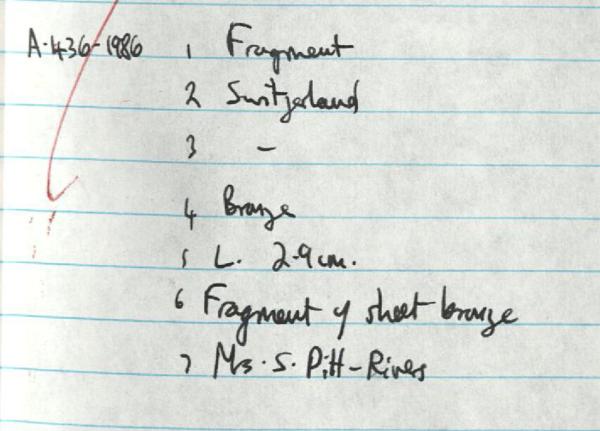 A·436-1986 1 Fragment
2 Switzerland
3 -
4 Bronze
5 L. 2·9 cm.
6 Fragment of sheet bronze
7 Ms. S. Pitt-Rivers